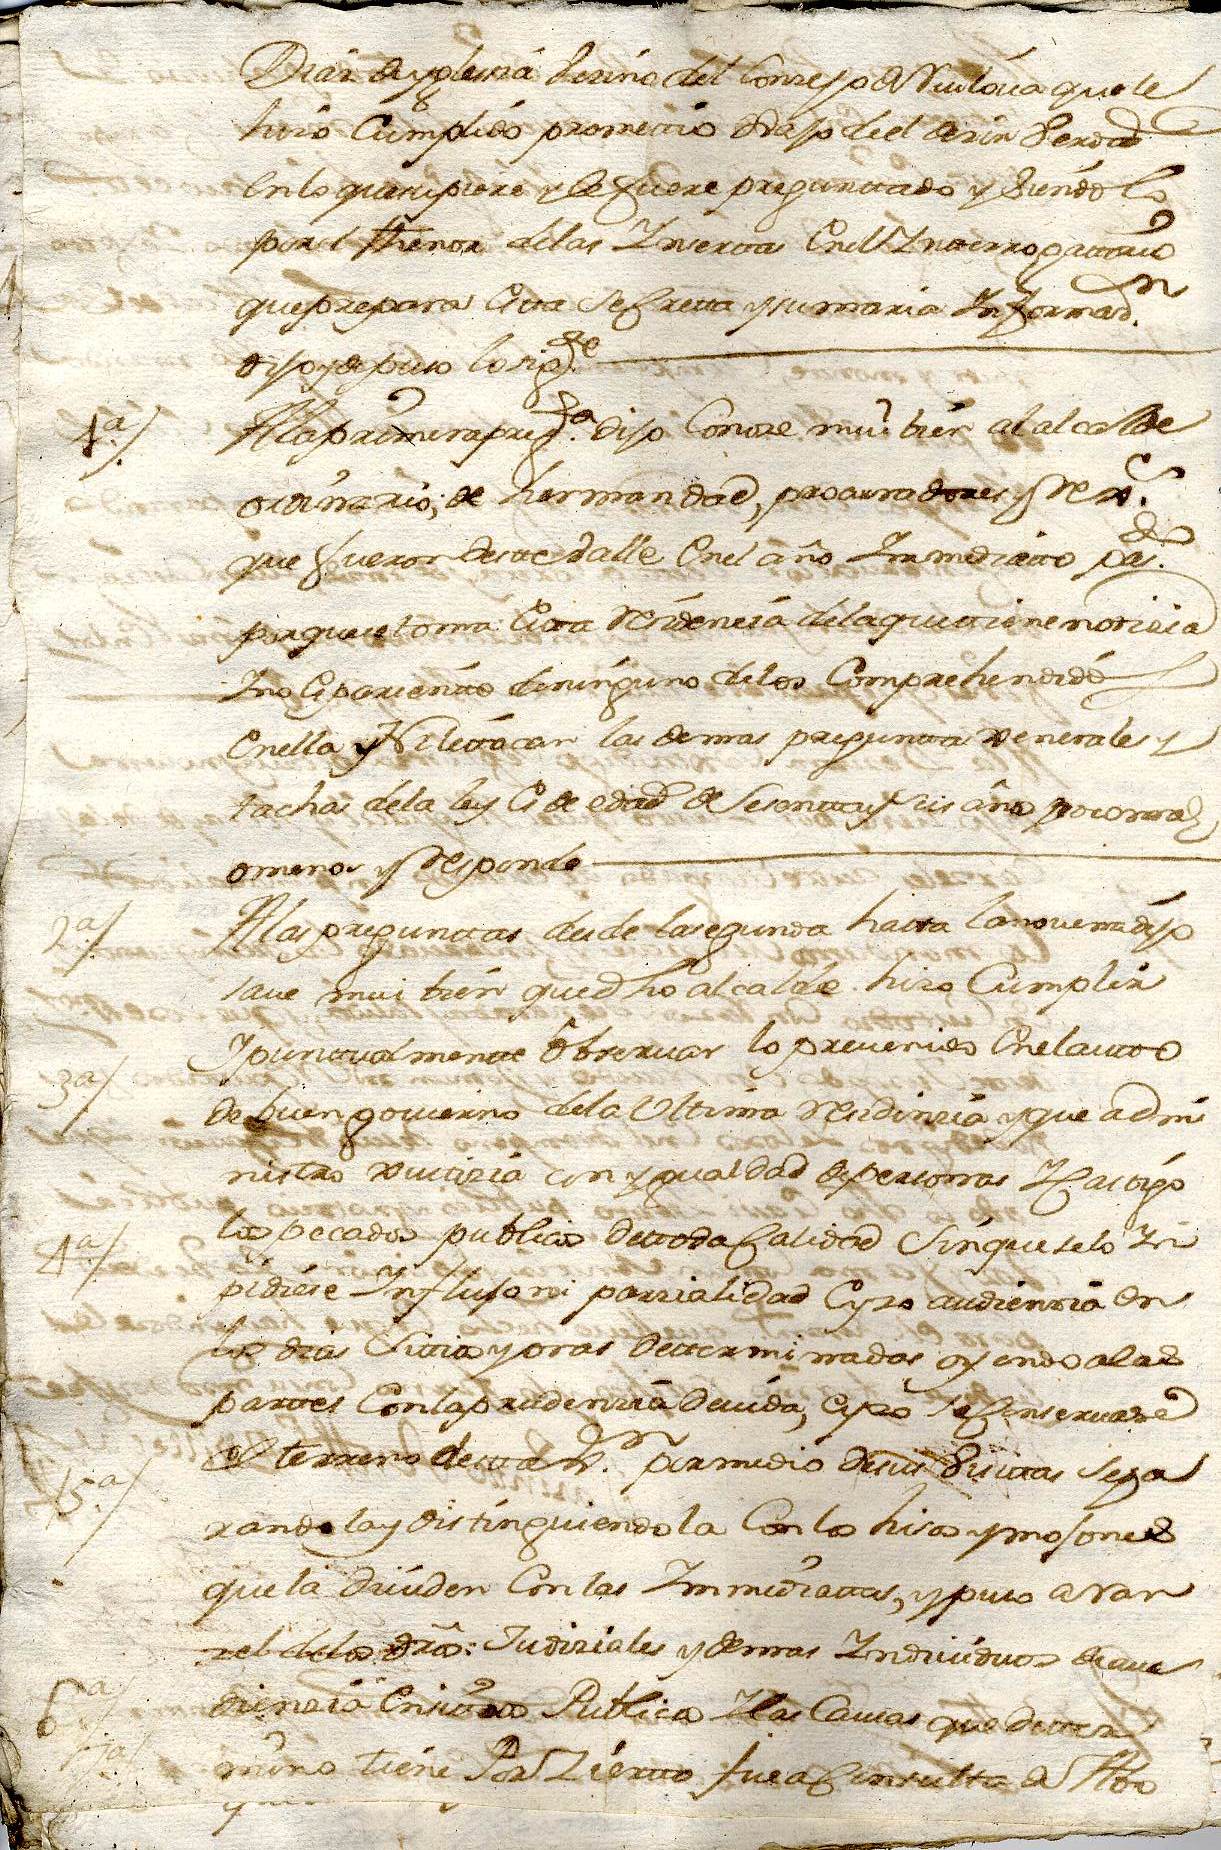 Diaz de yglesia Vezino del Conzejo de Ruiloua que le
hizo Cumplido prometio devajo del dezir Verdad
en lo que supiere y le fuere preguntado y siendolo
por el thenor de las Insertas en el Interrogattorio
que prepara esta secretta y sumaria Informaz.on
dijo y depuso lo sig.te
1ª/. A la primera preg.ta dijo Conoze mui bien al alcalde
ordinario, de hermandad, procuradores y
que fueron deste Valle en el año Inmediatto pas.do
por quiese toma esta residenzia de la que tiene notizia
I no es parientte de ninguno de los Comprehendidos
en ella y Ni le tocan las demas preguntas generales y
tachas de la ley es de edad de Sesentta y seis años poco mas
o menos y responde
2ª/. A las preguntas desde la segunda hasta la novena dijo
saue mui bien que dho alcalde hizo Cumplir
3ª/. I puntualmente obseruar lo preuenido en el autto
de buen gouierno de la Ultima residenzia y que admi
nistro Justizia con ygualdad de personas I Castigo
4ª/. los pecados publicos de toda Calidad sin que se lo Im
pidiese Influso ni parzialidad e yzo audienzia en
los dias sitios y oras determinadas oyendo a las
partes Con la prudenzia deuida, e yzo se Conseruase
5ª/. el terreno desta por medio de sus Visitas sepa
randola y distinguiendola Con los hisos y mojones
que la diuiden Con las Immediattas, y puso aran
zel de los dros: Judiziales y demas Indiuiduos de au
6ª/. dienzia en sitio Publico I las Causas que deter
7ª/. mino tiene Por Zierto fue a Consulta de Abo